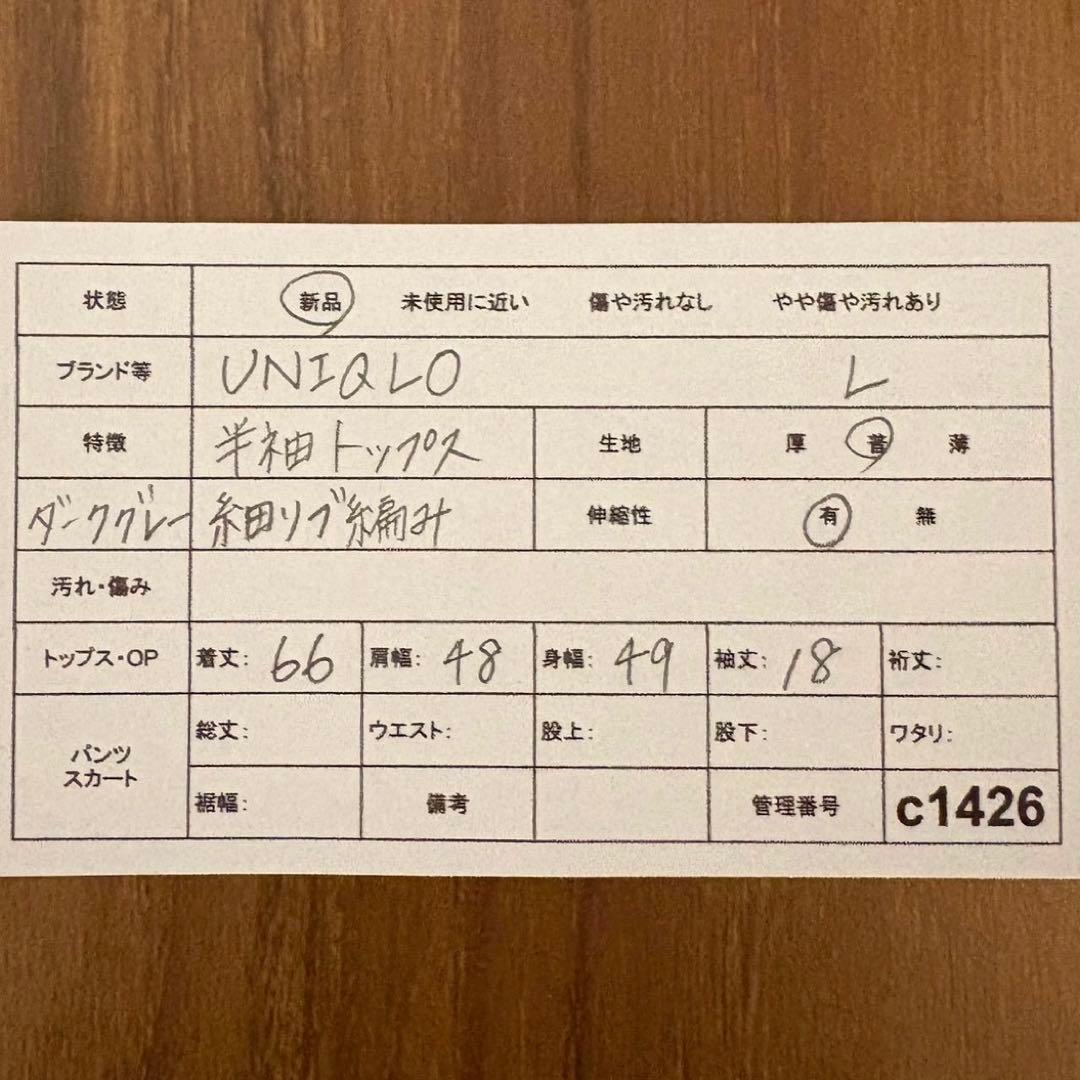 状態 新品 未使用に近い 傷や汚れなし やや傷や汚れあり
ブランド等 UNIQLO L
特徴 半袖トップス 生地 厚 普 薄
ダークグレー 細リブ編み 伸縮性 有 無
汚れ・傷み
トップス・OP 着丈: 66 肩幅: 48 身幅: 49 袖丈: 18 裄丈:
パンツ
スカート
総丈: ウエスト: 股上: 股下: ワタリ:
裾幅: 備考 管理番号 c1426